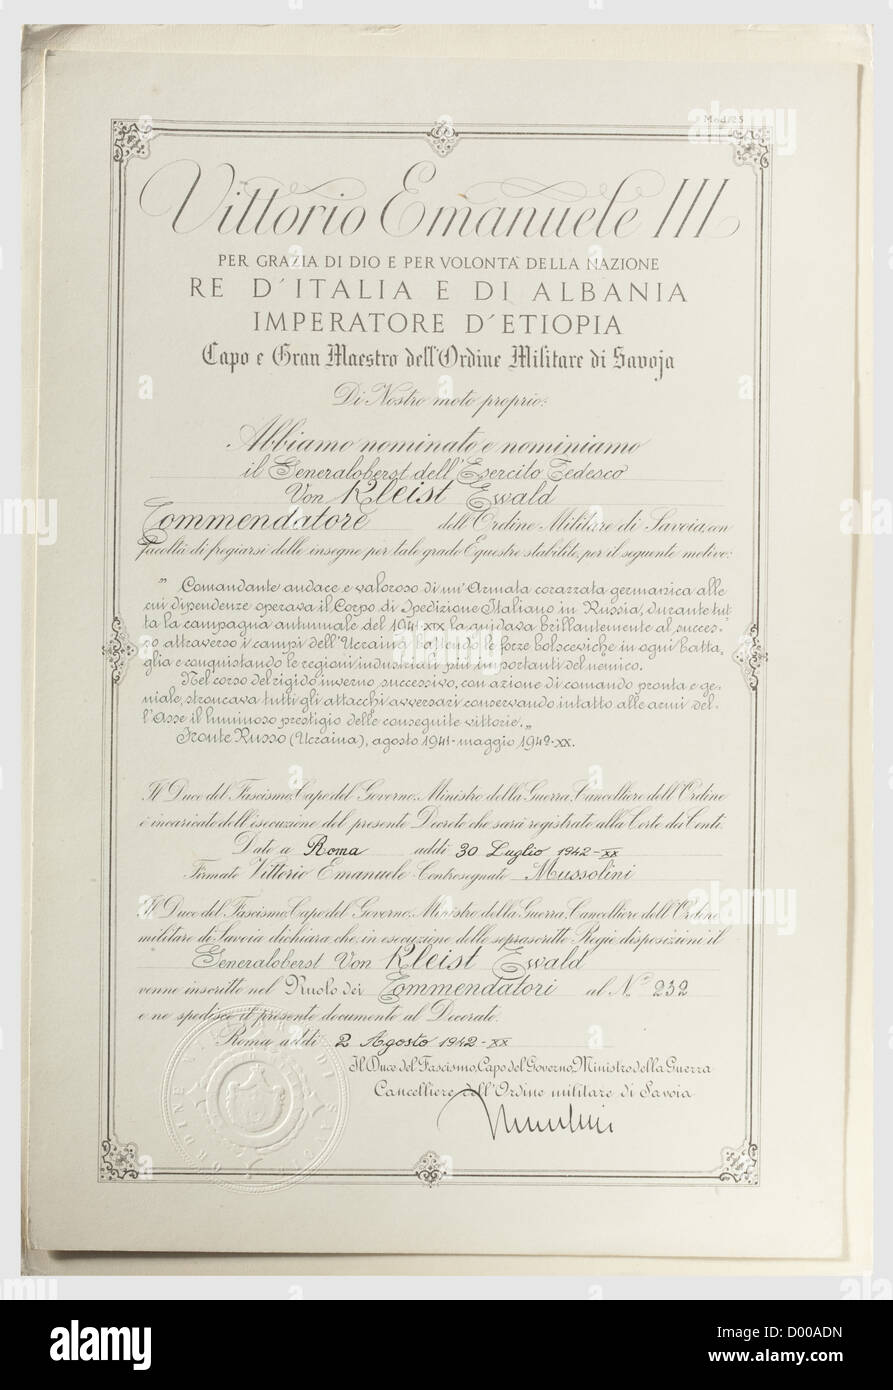 Mod. 25
Vittorio Emanuele III
PER GRAZIA DI DIO E PER VOLONTÀ DELLA NAZIONE
RE D'ITALIA E DI ALBANIA
IMPERATORE D'ETIOPIA
Capo e Gran Maestro dell'Ordine Militare di Savoja
Di Nostro moto proprio:
Abbiamo nominato e nominiamo
il Generaloberst dell'Esercito Tedesco
Von Kleist Ewald
Commendatore dell'Ordine Militare di Savoia, con
facoltà di fregiarsi delle insegne per tale grado Equestre stabilite, per il seguente motivo:
" Comandante audace e valoroso di un'Armata corazzata germanica alle
cui dipendenze operava il Corpo di Spedizione Italiano in Russia, durante tut-
ta la campagna autunnale del 1941-XIX la guidava brillantemente al succes-
so attraverso i campi dell'Ucraina battendo le forze bolsceviche in ogni batta-
glia e conquistando le regioni industriali più importanti del nemico.
Nel corso del rigido inverno successivo, con azione di comando pronta e ge-
niale, stroncava tutti gli attacchi avversari conservando intatto alle armi del-
l'Asse il luminoso prestigio delle conseguite vittorie. „
Fronte Russo (Ucraina), agosto 1941-maggio 1942-XX.
Il Duce del Fascismo, Capo del Governo, Ministro della Guerra, Cancelliere dell'Ordine
è incaricato dell'esecuzione del presente Decreto che sarà registrato alla Corte dei Conti.
Dato a Roma addì 30 Luglio 1942-XX
Firmato Vittorio Emanuele Controsegnato Mussolini
Il Duce del Fascismo, Capo del Governo, Ministro della Guerra, Cancelliere dell'Ordine
militare di Savoia dichiara che, in esecuzione delle soprascritte Regie disposizioni il
Generaloberst Von Kleist Ewald
venne inscritto nel Ruolo dei Commendatori al N° 232
e ne spedisce il presente documento al Decorato.
Roma addì 2 Agosto 1942-XX
Il Duce del Fascismo, Capo del Governo, Ministro della Guerra
Cancelliere dell'Ordine militare di Savoia
alamy
Image ID: D00ADN
www.alamy.com